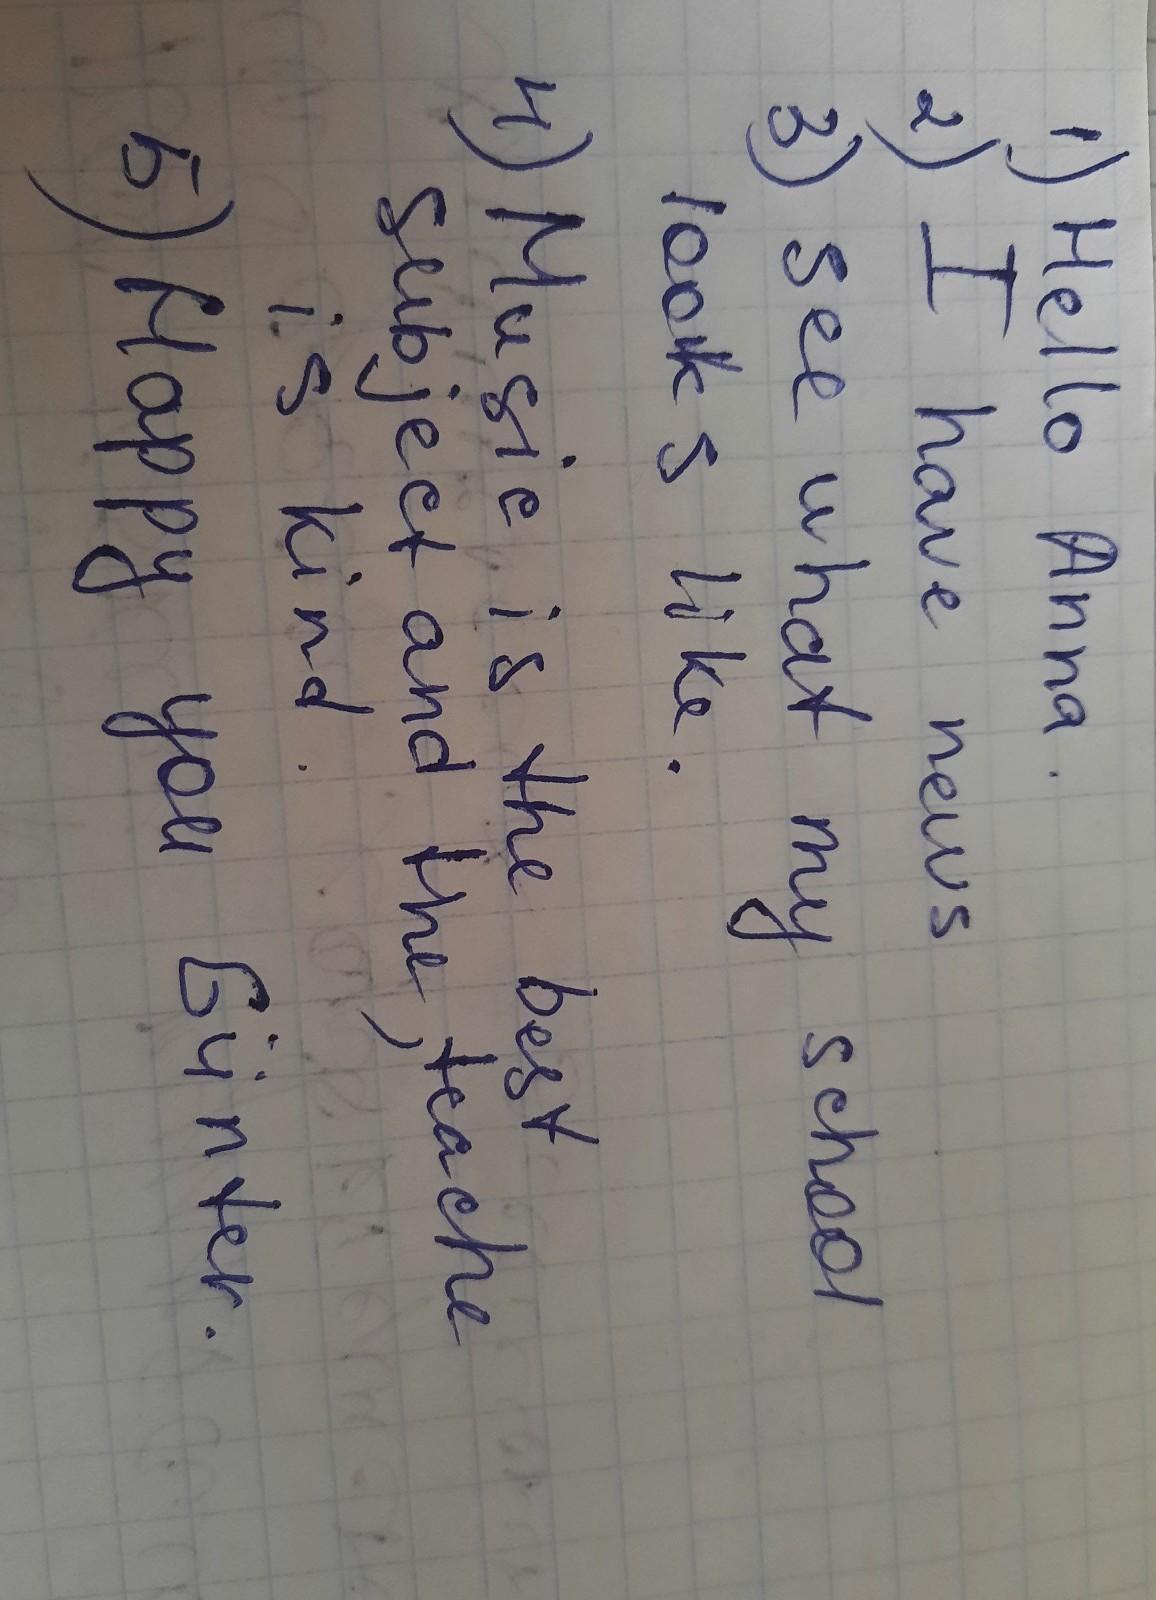 1) Hello Anna.
2) I have news
3) see what my school
looks like.
4) Music is the best
subject and the, teache
is kind.
5) Happy you Ginter.